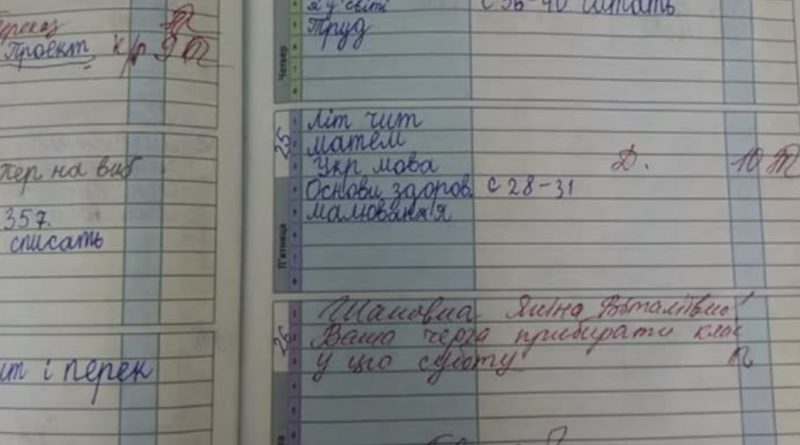 Проєкт к/р 9
пер на виб
357.
списать
і перек
я у світі с 36-40 читать
Труд
Четвер
25
Літ чит
матем
Укр мова Д. 10
Основи здоров с 28-31
малювання
П'ятниця
26
Шановна Яніна Віталіївно!
Ваша черга прибирати клас
у цю суботу